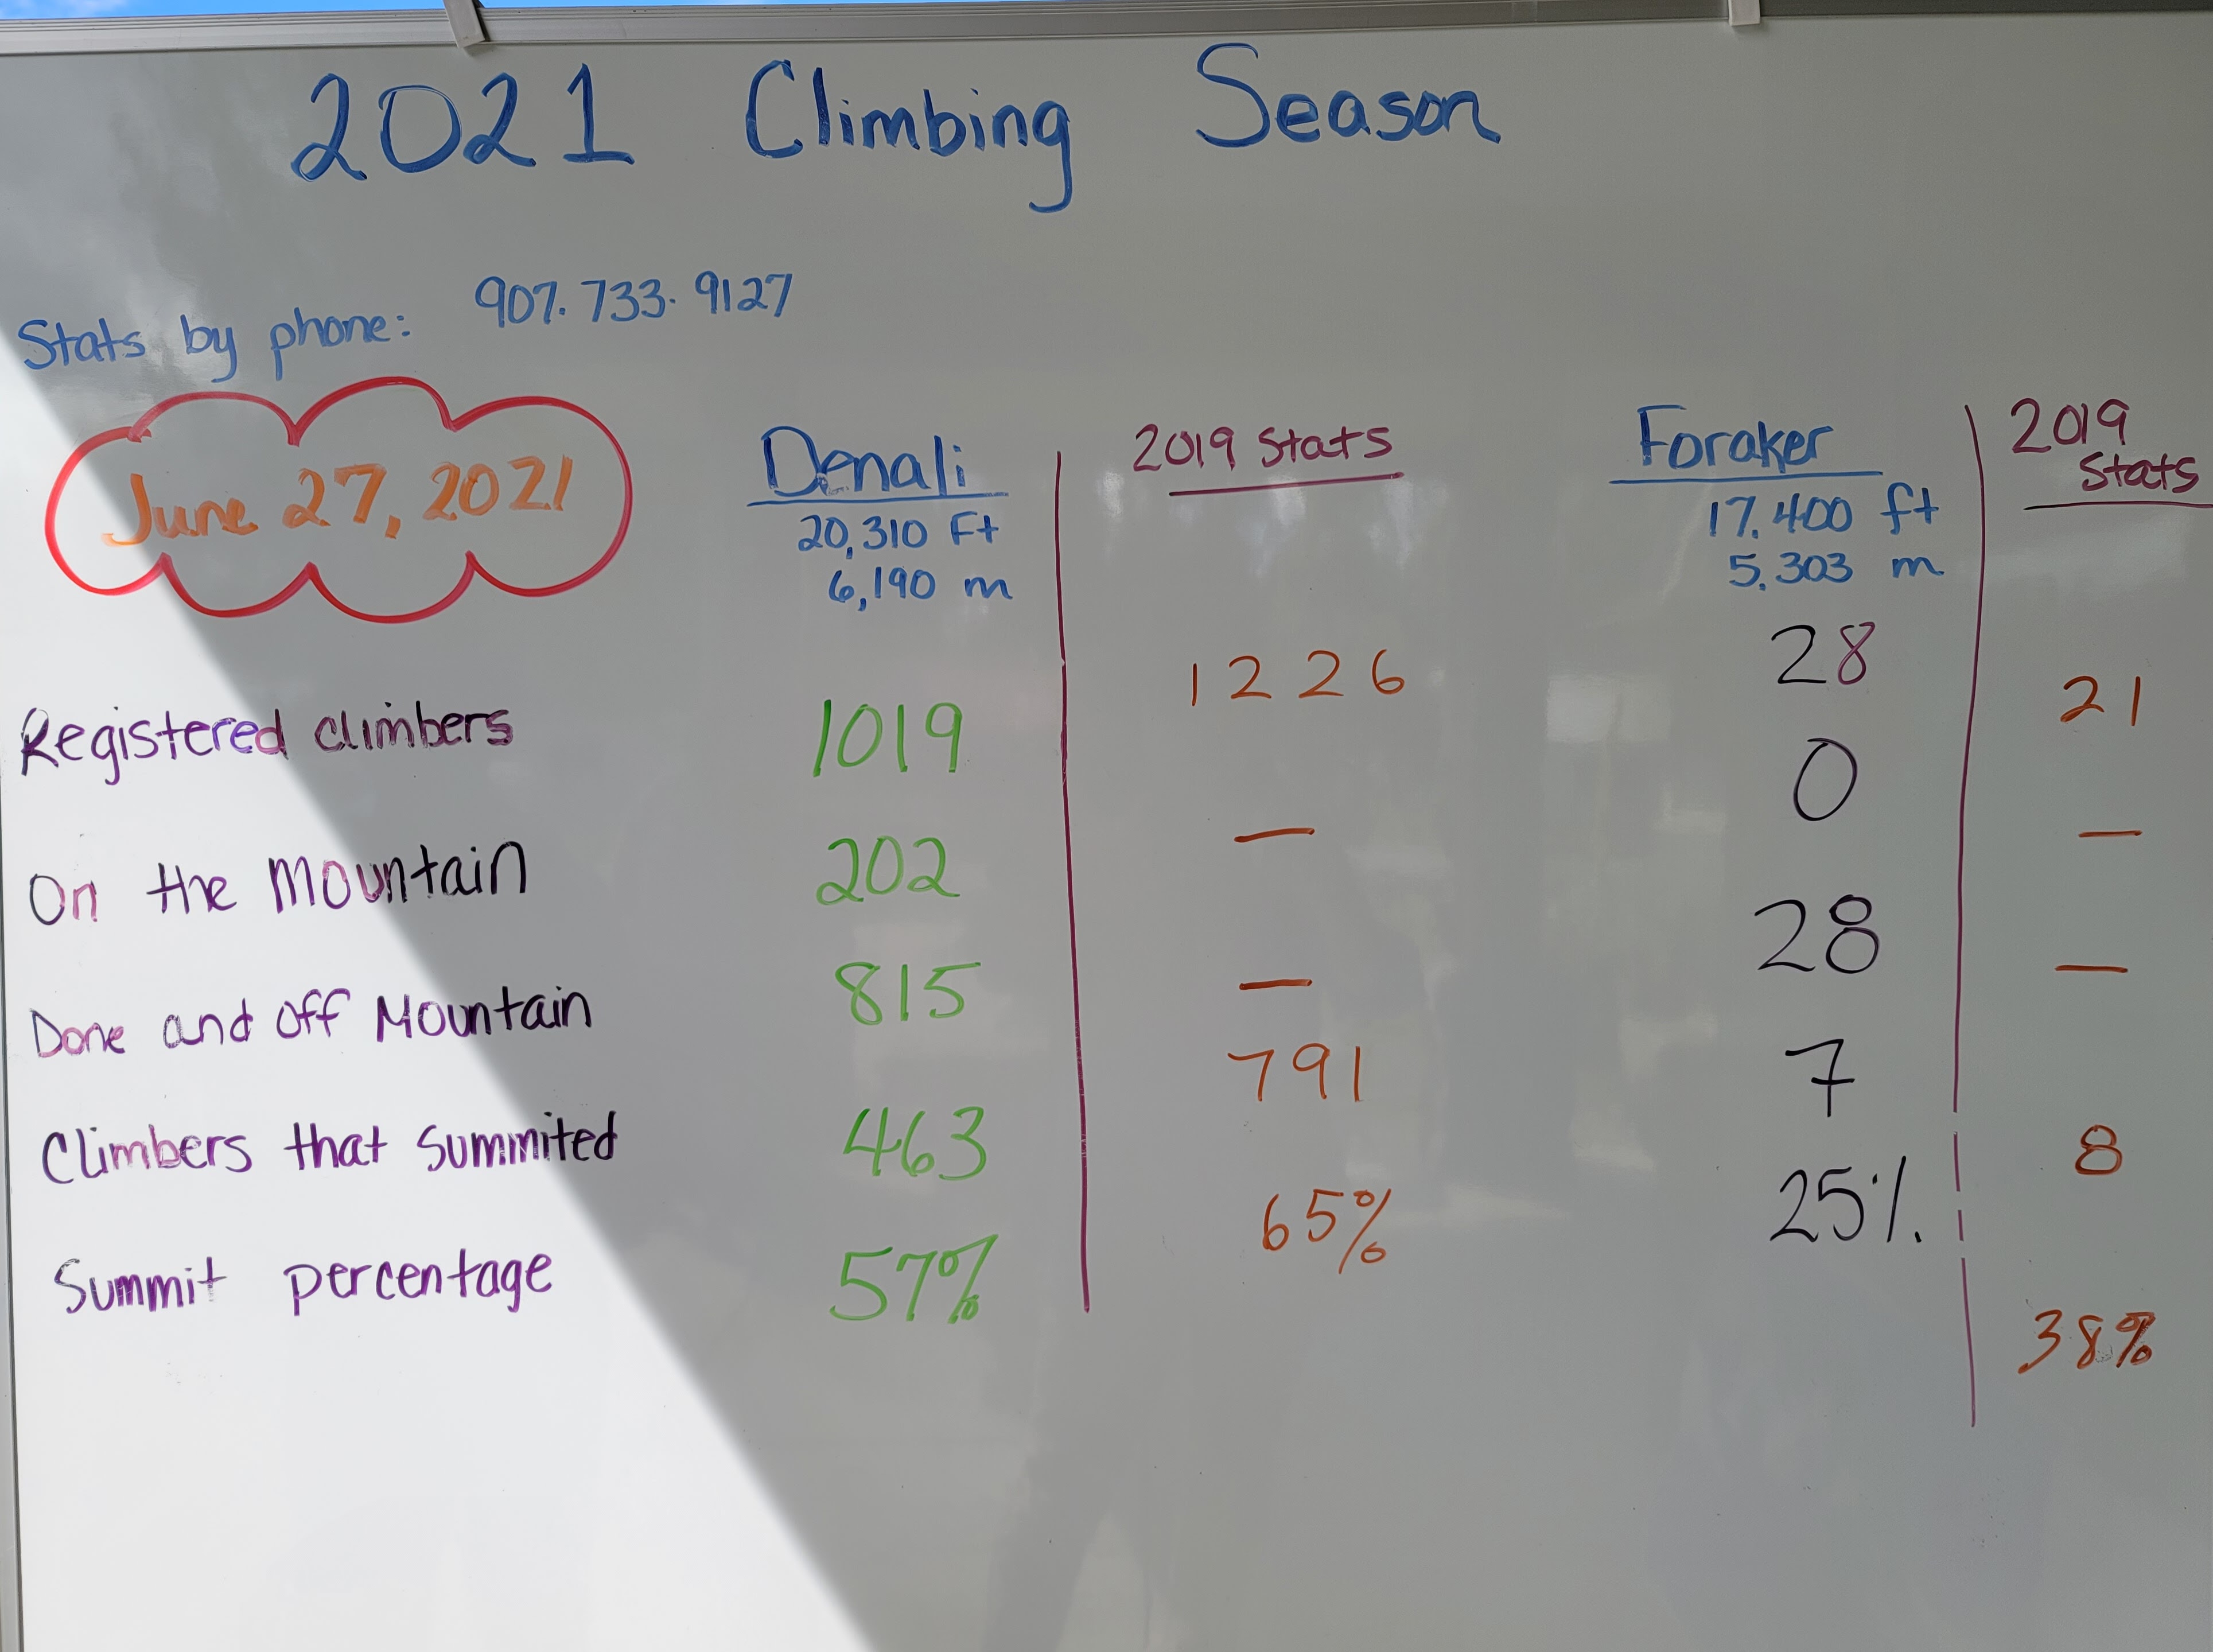 2021 Climbing Season
Stats by phone: 907.733.9127
June 27, 2021
Denali
20,310 Ft
6,190 m
2019 Stats
Foraker
17,400 ft
5,303 m
2019
Stats
Registered climbers 1019 1226 28 21
On the Mountain 202 — 0 —
Done and off Mountain 815 — 28 —
Climbers that Summited 463 791 7 8
Summit percentage 57% 65% 25% 38%